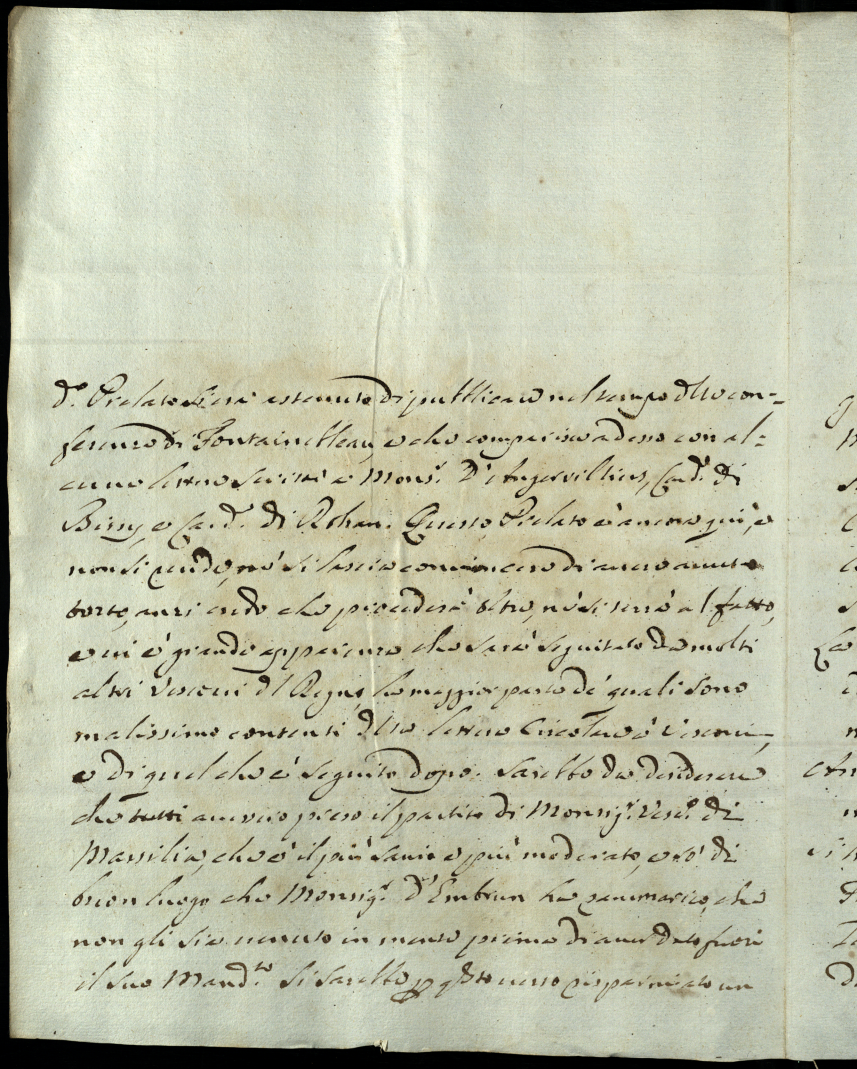 d.º Prelato s'era astenuto di publicare nel tempo dello con-
ferenze di Fontainebleau, e che comparisco adesso con al-
cune lettere scritte a Mons.r D'Angervillius, Card.l di
Bissy, e Card.l di Rohan. Questo Prelato è ancora quì, e
non si rende, nè si lascia convincere di avere avuto
torto, anzi credo che procederà oltre, nè si terrà al fatto,
e vi è grande apparenza che sarà seguitato da molti
altri Vescovi del Regno, la maggior parte de' quali sono
malissimo contenti della lettera Circolare à Vescovi,
e di quel che è seguito dopo. Sarebbe da desiderare
che tutti avessero preso il partito di Monsig.r Vesc.o di
Marsilia, che è il più savio e più moderato, e sò di
buon luogo che Monsig.r d'Embrun ha rammarico, che
non gli sia venuto in mente prima di aver dato fuori
il suo Mand.to Si sarebbe per q.sto verso risparmiato un
g
m
s
C
s
La
i
m
An
m
si
F
Ta
di